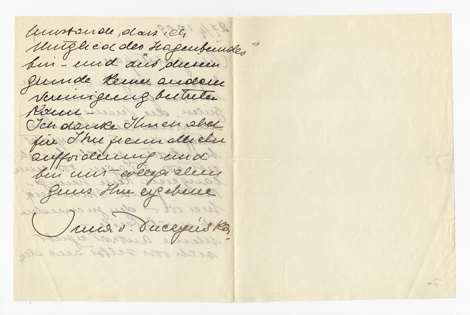 Umstande, dass ich
Mitglied des "Hagenbundes"
bin – und aus diesem
grunde keiner anderen
Vereinigung beitreten
kann –
Ich danke Ihnen aber
für Ihre freundliche
aufforderung und
bin mit collegialem
gruss Ihre ergebene
Irma v. Duczynska